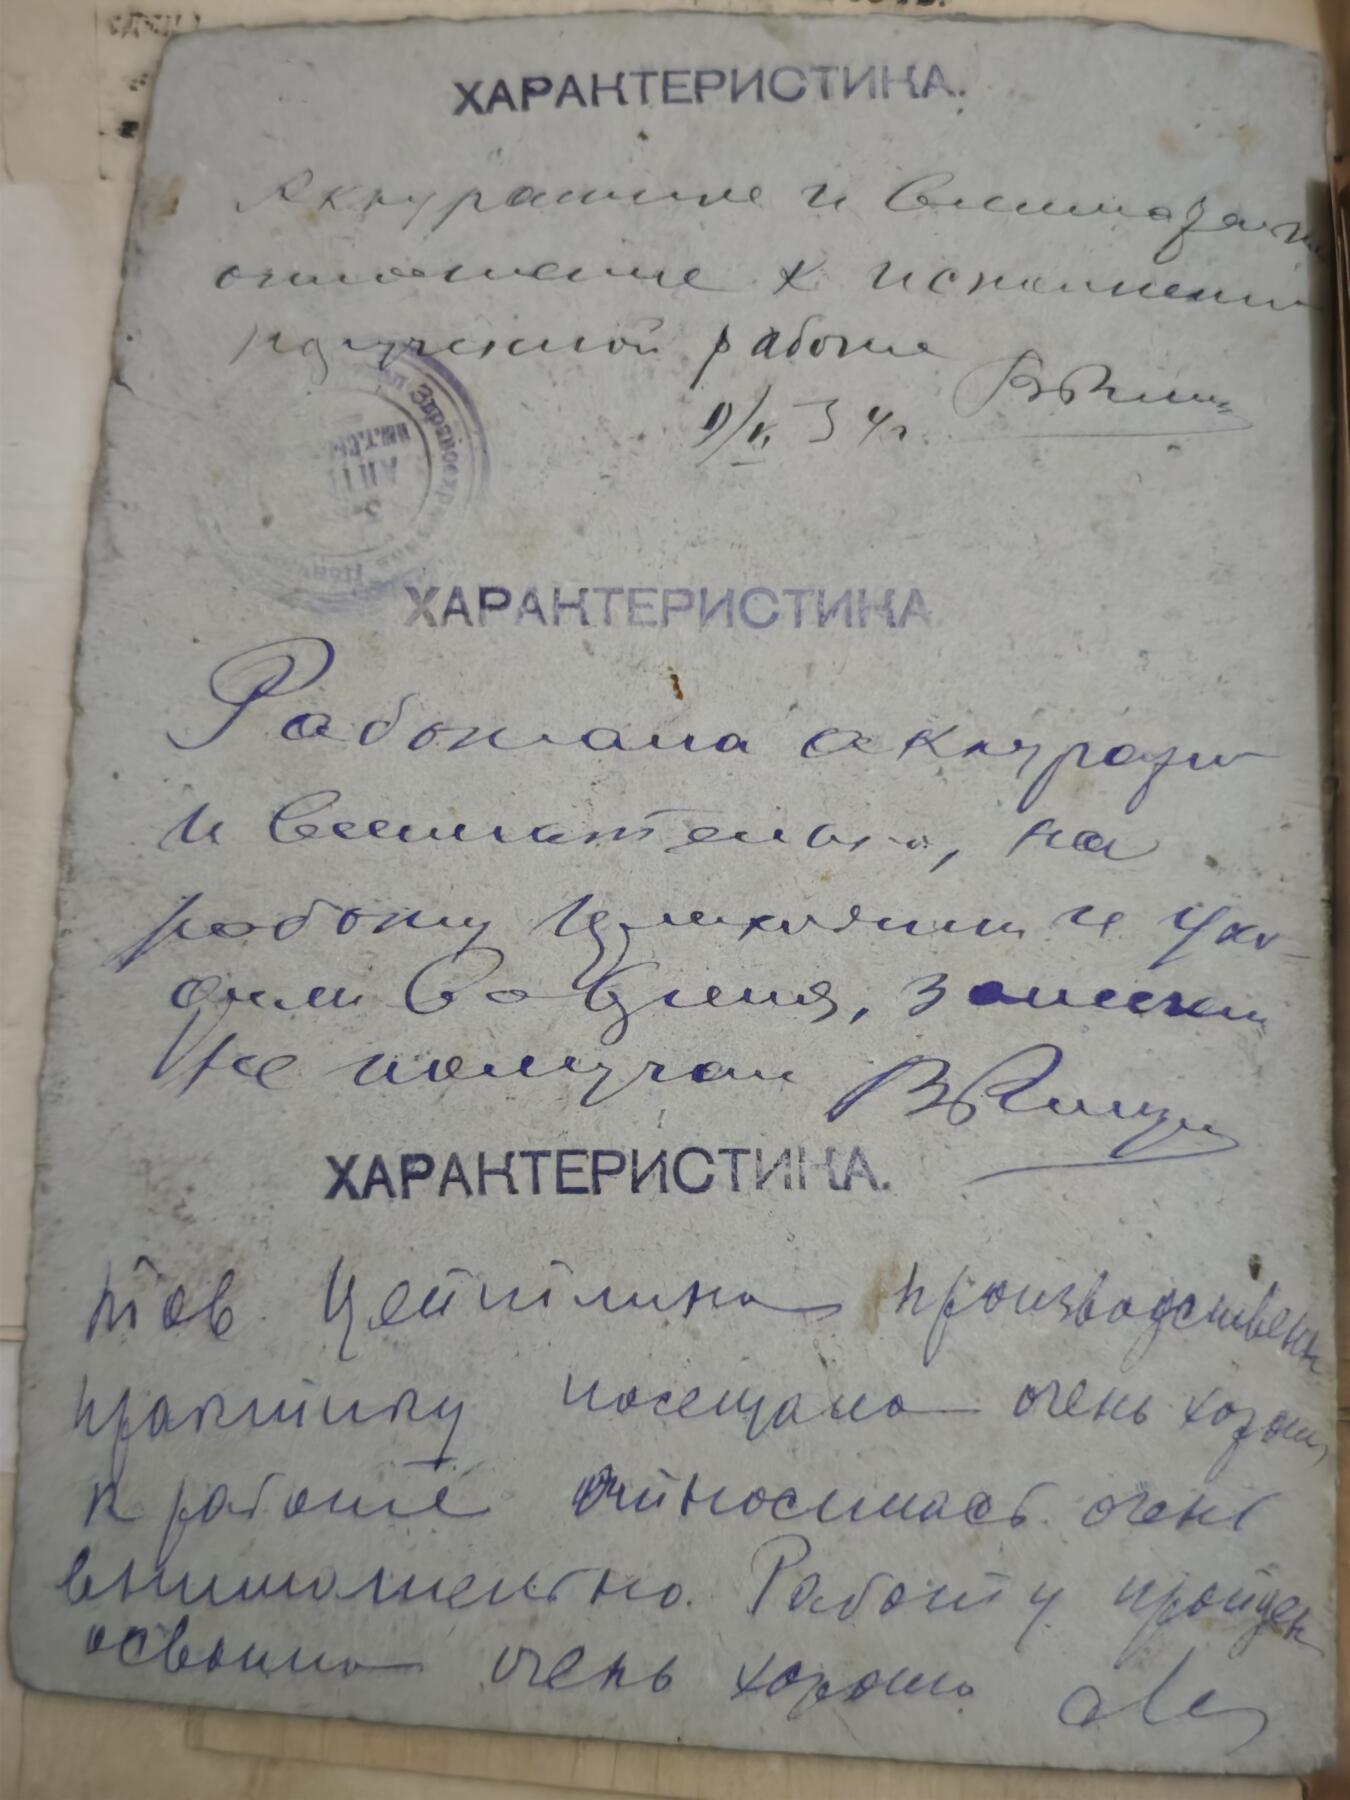 ХАРАКТЕРИСТИКА.
Аккуратное и внимательн
отношение к исполнению
порученной работе
34 г.
Здравоохр
ХАРАКТЕРИСТИКА
Работала аккуратно
и внимательно, на
работу и ухо-
дила во время,
не получал
ХАРАКТЕРИСТИКА.
Тов. Цейтлина производственн
практику посещала очень хорошо,
к работе относилась очень
внимательно. Работу пройден
освоила очень хорошо